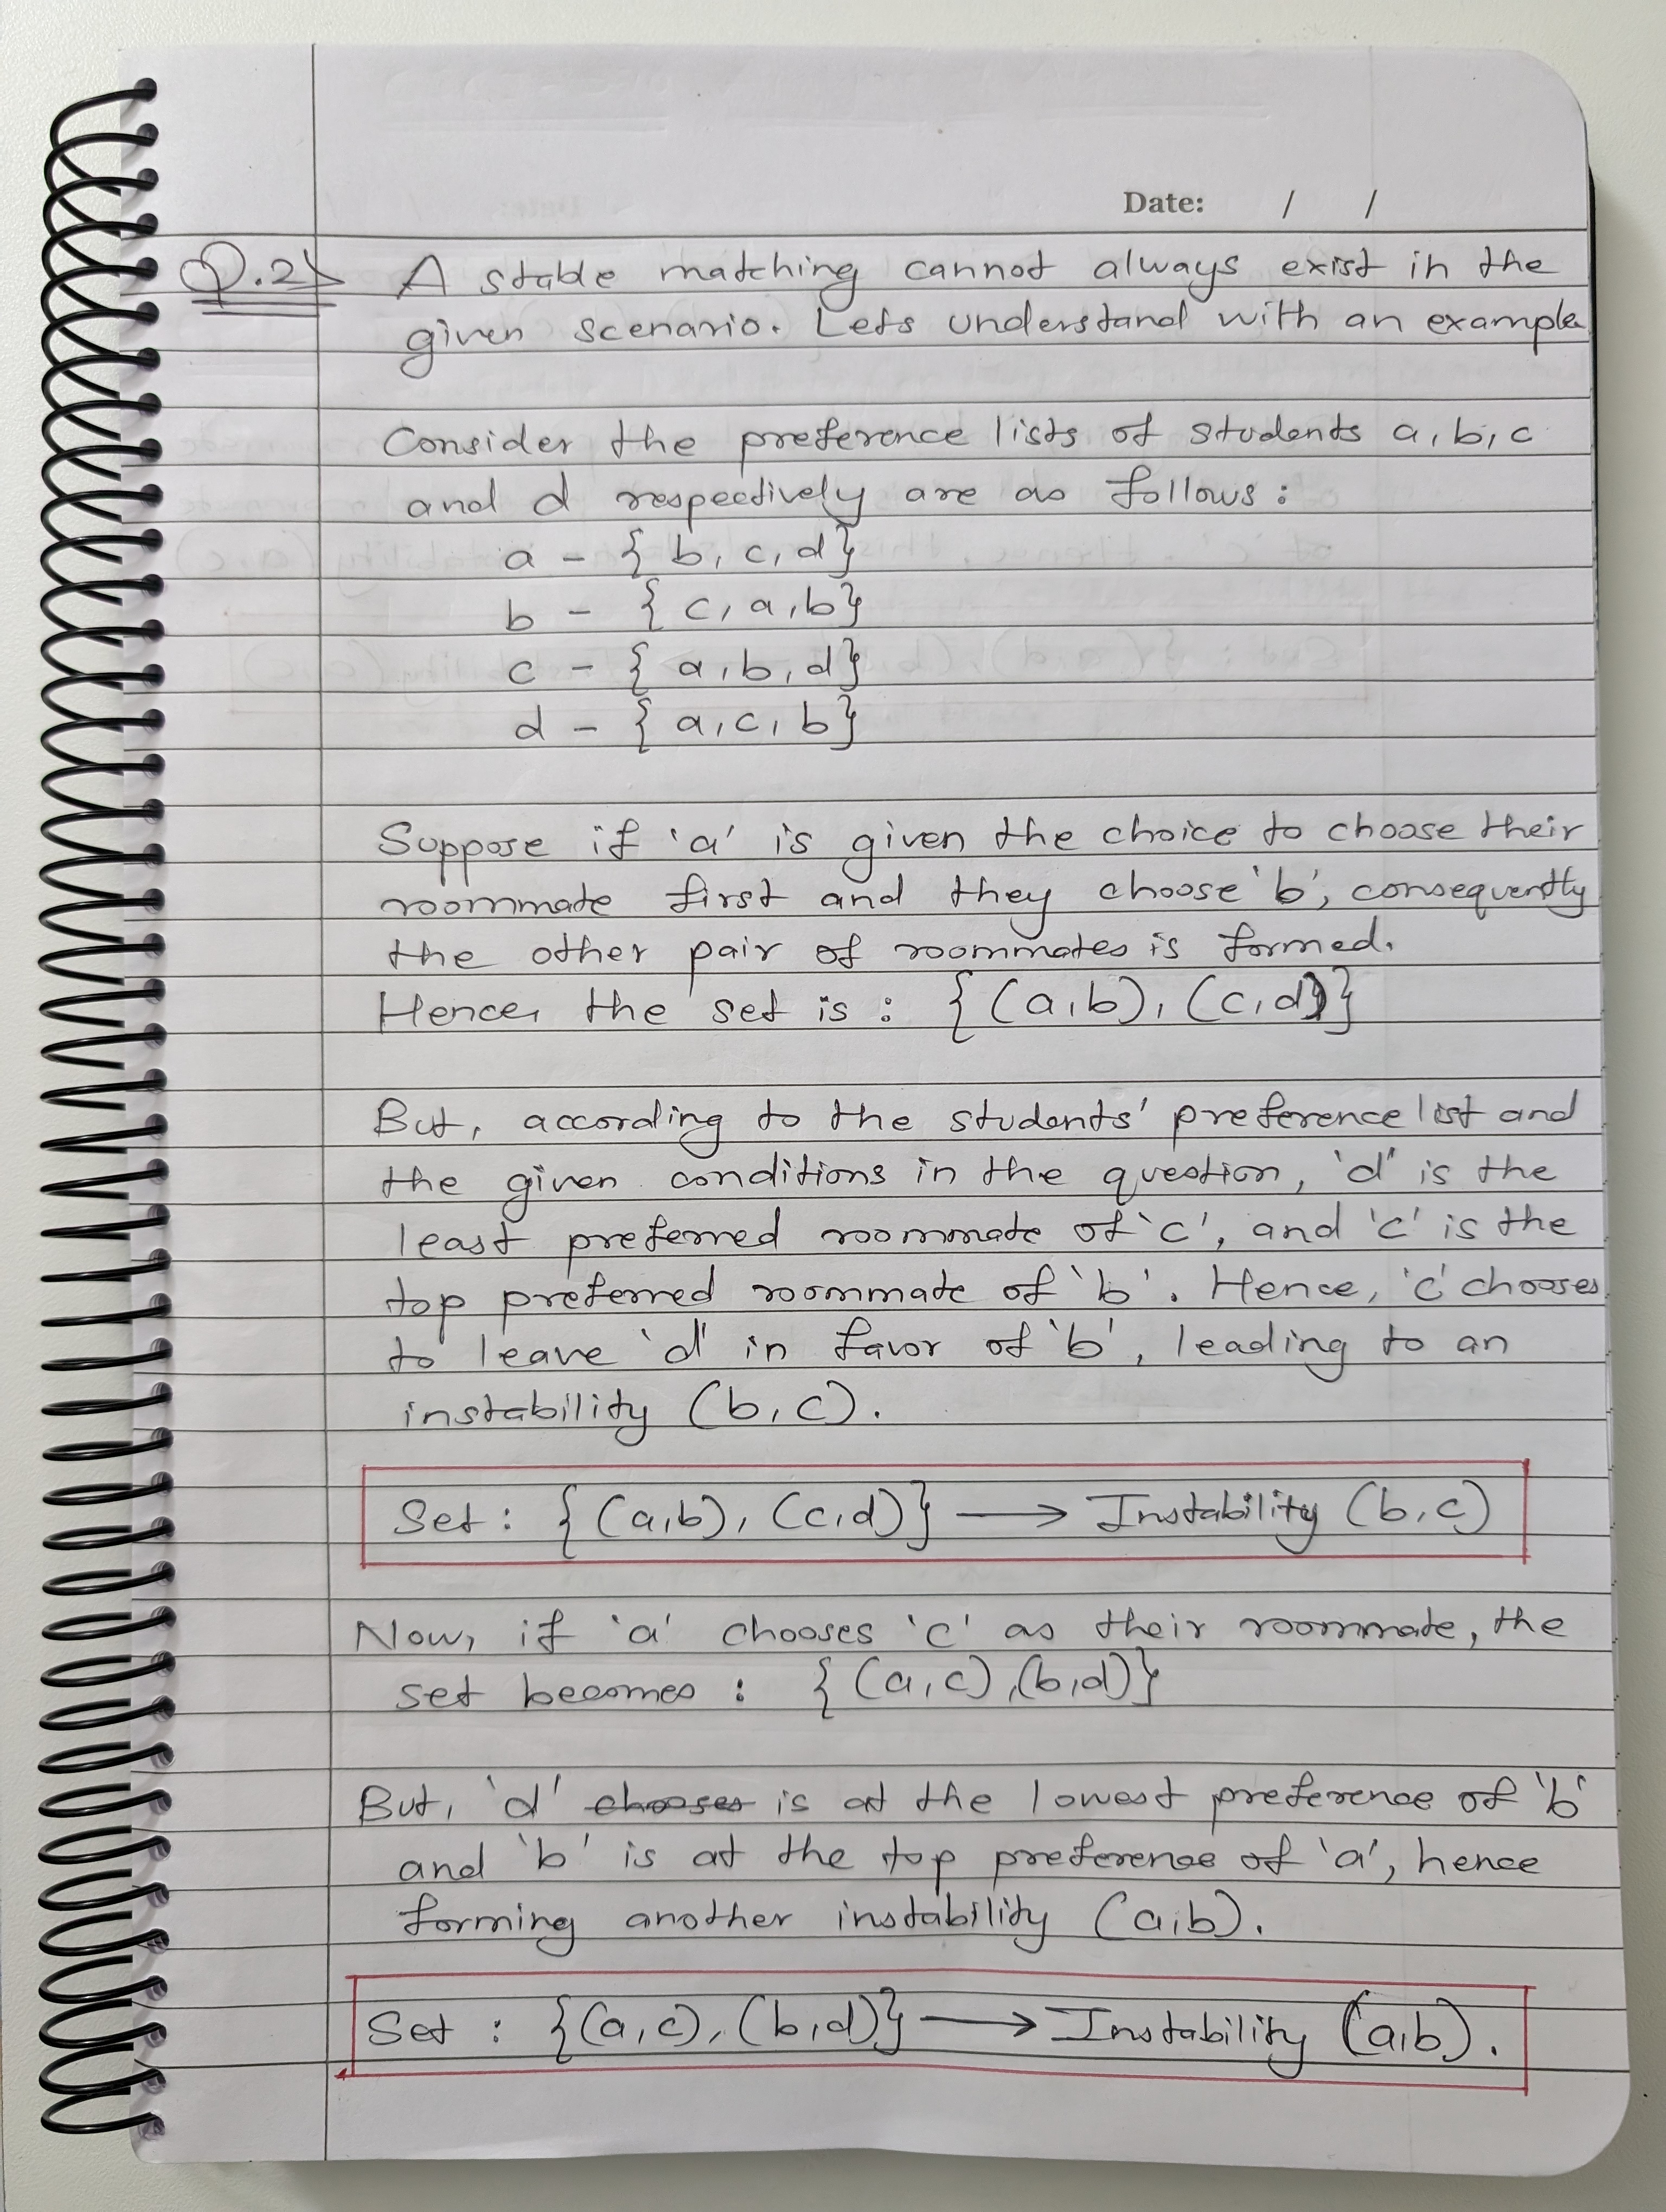 Date: / /
Q.2) A stable matching cannot always exist in the
given scenario. Lets understand with an example
Consider the preference lists of students a, b, c
and d respectively are as follows :
a - { b, c, d}
b - { c, a, b}
c - { a, b, d}
d - { a, c, b}
Suppose if 'a' is given the choice to choose their
roommate first and they choose 'b', consequently
the other pair of roommates is formed.
Hence, the set is : { (a,b), (c,d)}
But, according to the students' preference list and
the given conditions in the question, 'd' is the
least preferred roommate of 'c', and 'c' is the
top preferred roommate of 'b'. Hence, 'c' chooses
to leave 'd' in favor of 'b', leading to an
instability (b,c).
Set : { (a,b), (c,d)} → Instability (b,c)
Now, if 'a' chooses 'c' as their roommate, the
set becomes : { (a,c), (b,d)}
But, 'd' chooses is at the lowest preference of 'b'
and 'b' is at the top preference of 'a', hence
forming another instability (a,b).
Set : {(a,c), (b,d)} → Instability (a,b).